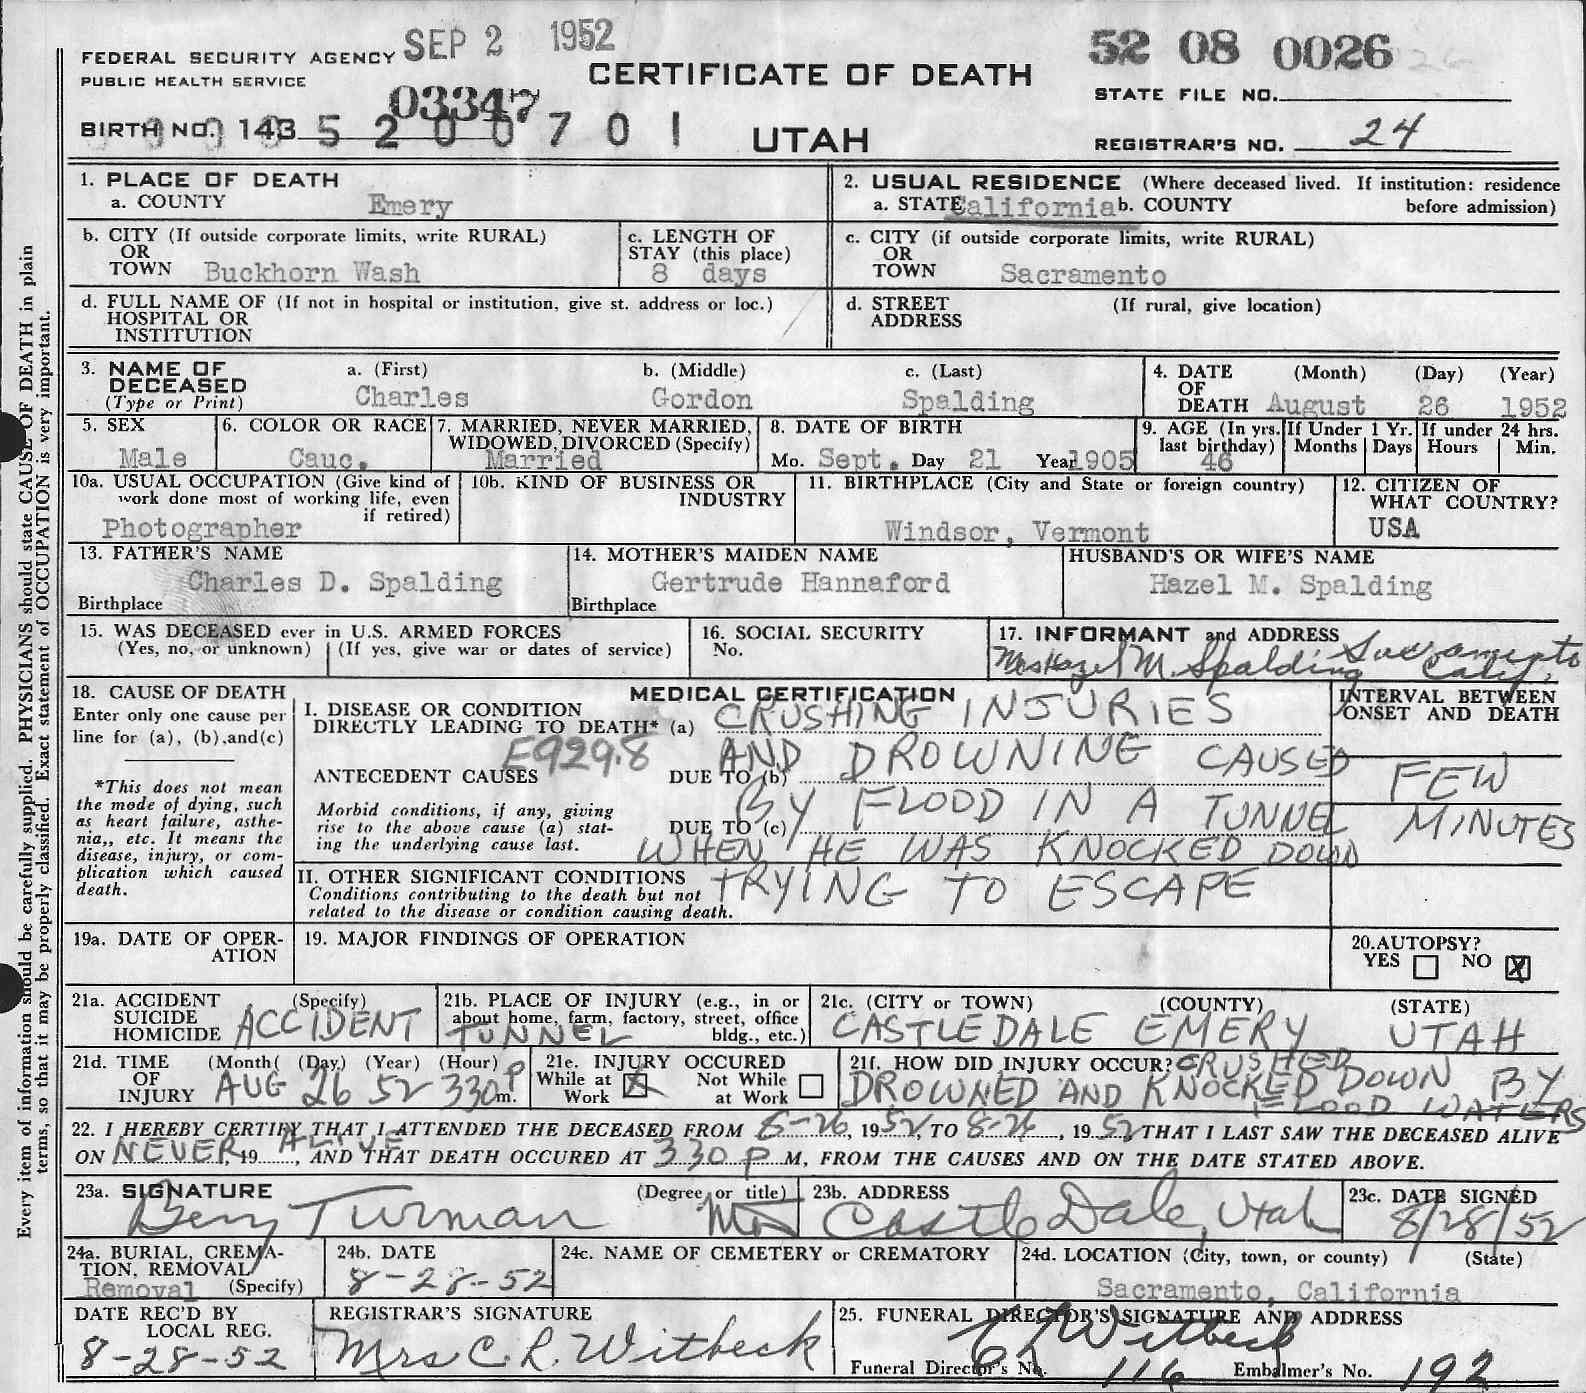 FEDERAL SECURITY AGENCY SEP 2 1952
PUBLIC HEALTH SERVICE
CERTIFICATE OF DEATH
UTAH
52 08 0026
STATE FILE NO.
03347
BIRTH NO. 143 5 2 0 0 7 0 1
REGISTRAR'S NO. 24
Every item of information should be carefully supplied. PHYSICIANS should state CAUSE OF DEATH in plain
terms, so that it may be properly classified. Exact statement of OCCUPATION is very important.
1. PLACE OF DEATH
a. COUNTY Emery
2. USUAL RESIDENCE (Where deceased lived. If institution: residence
a. STATE California b. COUNTY before admission)
b. CITY (If outside corporate limits, write RURAL)
OR
TOWN Buckhorn Wash
c. LENGTH OF
STAY (this place)
8 days
c. CITY (if outside corporate limits, write RURAL)
OR
TOWN Sacramento
d. FULL NAME OF (If not in hospital or institution, give st. address or loc.)
HOSPITAL OR
INSTITUTION
d. STREET (If rural, give location)
ADDRESS
3. NAME OF a. (First) b. (Middle) c. (Last)
DECEASED
(Type or Print) Charles Gordon Spalding
4. DATE (Month) (Day) (Year)
OF
DEATH August 26 1952
5. SEX
Male
6. COLOR OR RACE
Cauc.
7. MARRIED, NEVER MARRIED,
WIDOWED, DIVORCED (Specify)
Married
8. DATE OF BIRTH
Mo. Sept. Day 21 Year 1905
9. AGE (In yrs.
last birthday)
46
If Under 1 Yr.
Months Days
If under 24 hrs.
Hours Min.
10a. USUAL OCCUPATION (Give kind of
work done most of working life, even
if retired)
Photographer
10b. KIND OF BUSINESS OR
INDUSTRY
11. BIRTHPLACE (City and State or foreign country)
Windsor, Vermont
12. CITIZEN OF
WHAT COUNTRY?
USA
13. FATHER'S NAME
Charles D. Spalding
Birthplace
14. MOTHER'S MAIDEN NAME
Gertrude Hannaford
Birthplace
HUSBAND'S OR WIFE'S NAME
Hazel M. Spalding
15. WAS DECEASED ever in U.S. ARMED FORCES
(Yes, no, or unknown) (If yes, give war or dates of service)
16. SOCIAL SECURITY
No.
17. INFORMANT and ADDRESS Sacramento
Mrs Hazel M. Spalding Calif.
18. CAUSE OF DEATH
Enter only one cause per
line for (a), (b),and(c)
*This does not mean
the mode of dying, such
as heart failure, asthe-
nia,, etc. It means the
disease, injury, or com-
plication which caused
death.
MEDICAL CERTIFICATION
I. DISEASE OR CONDITION
DIRECTLY LEADING TO DEATH* (a) CRUSHING INJURIES
E929.8 AND DROWNING CAUSED
ANTECEDENT CAUSES DUE TO (b)
Morbid conditions, if any, giving
rise to the above cause (a) stat-
ing the underlying cause last.
BY FLOOD IN A TUNNEL
DUE TO (c)
WHEN HE WAS KNOCKED DOWN
II. OTHER SIGNIFICANT CONDITIONS TRYING TO ESCAPE
Conditions contributing to the death but not
related to the disease or condition causing death.
INTERVAL BETWEEN
ONSET AND DEATH
FEW
MINUTES
19a. DATE OF OPER-
ATION
19. MAJOR FINDINGS OF OPERATION
20. AUTOPSY?
YES NO X
21a. ACCIDENT (Specify)
SUICIDE
HOMICIDE ACCIDENT
21b. PLACE OF INJURY (e.g., in or
about home, farm, factory, street, office
bldg., etc.)
TUNNEL
21c. (CITY or TOWN) (COUNTY) (STATE)
CASTLEDALE EMERY UTAH
21d. TIME (Month( (Day) (Year) (Hour)
OF
INJURY AUG 26 52 330 P m.
21e. INJURY OCCURED
While at Work X Not While at Work
21f. HOW DID INJURY OCCUR? CRUSHED
DROWNED AND KNOCKED DOWN BY
FLOOD WATERS
22. I HEREBY CERTIFY THAT I ATTENDED THE DECEASED FROM 8-26, 1952, TO 8-26, 1952, THAT I LAST SAW THE DECEASED ALIVE
ON NEVER ALIVE, 19, AND THAT DEATH OCCURED AT 330 P M, FROM THE CAUSES AND ON THE DATE STATED ABOVE.
23a. SIGNATURE (Degree or title)
Turman
23b. ADDRESS
Castle Dale, Utah
23c. DATE SIGNED
8/28/52
24a. BURIAL, CREMA-
TION, REMOVAL
Removal (Specify)
24b. DATE
8-28-52
24c. NAME OF CEMETERY or CREMATORY
24d. LOCATION (City, town, or county) (State)
Sacramento, California
DATE REC'D BY
LOCAL REG.
8-28-52
REGISTRAR'S SIGNATURE
Mrs C. R. Witbeck
25. FUNERAL DIRECTOR'S SIGNATURE AND ADDRESS
Witbeck
Funeral Director's No. 116 Embalmer's No. 192